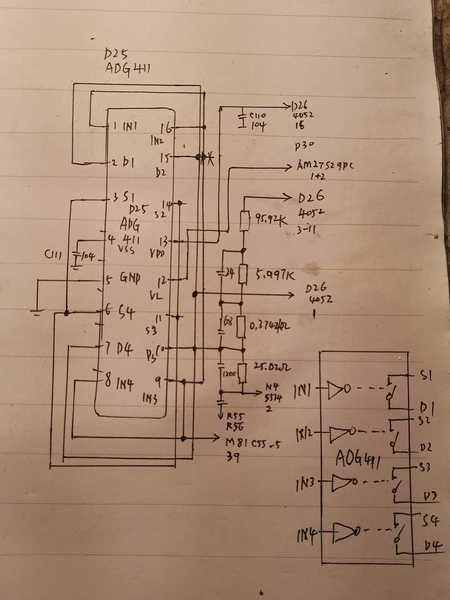 D25
ADG411
1 IN1
16
IN2
2 D1
15
D2
3 S1
D25
14
S2
ADG
4 411
VSS
13
VDD
C111
104
5 GND
12
VL
6 S4
11
S3
7 D4
10
D3
8 IN4
9
IN3
C110
104
D26
4052
16
D30
AM27S29DC
1+2
D26
4052
3-11
95.92K
5.997K
D26
4052
1
68
25.02Ω
1200
N4
5534
2
R55
R56
M81C55-5
39
IN1
S1
D1
IN2
S2
D2
ADG411
IN3
S3
D3
IN4
S4
D4